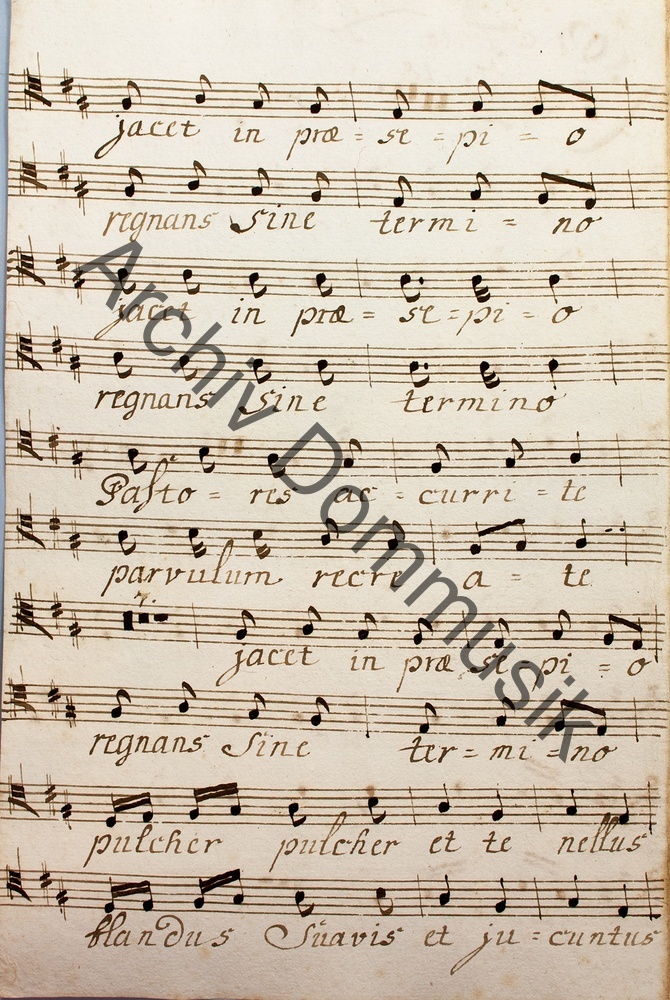 jacet in præ = se = pi = o
regnans Sine termi = no
jacet in præ = se = pi = o
regnans Sine termino
Pasto = res ac = curri = te
parvulum recre a = te
7.
jacet in præ se = pi = o
regnans Sine ter = mi = no
pulcher pulcher et te nellus
blandus Suavis et ju = cuntus
Archiv Dommusik